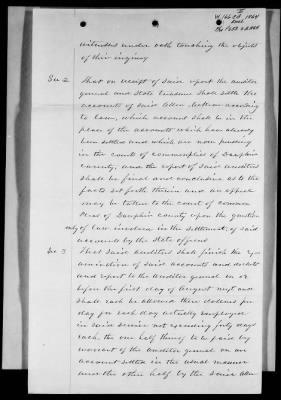 witnesses under oath touching the objects
of their inquiry
Sec 2 That on receipt of said report the auditor
general and State treasurer shall settle the
accounts of said Allen according
to law, which account shall be in the
place of the accounts which have already
been settled and which are now pending
in the courts of common pleas of Dauphin
County, and the report of said auditors
shall be final and conclusive as to the
facts set forth therein and an appeal
may be taken to the court of common
Pleas of Dauphin County upon the question
only of law involved in the settlement of said
accounts by the State officers
Sec 3 That said auditors shall finish the ex-
amination of said accounts and
and report to the auditor general on or
before the first day of August next and
shall each be allowed three dollars per
day for each day actually employed
in said service not exceeding forty days
each, the one half thereof to be paid by
warrant of the auditor general on an
account settled in the usual manner
and the other half by the said Allen